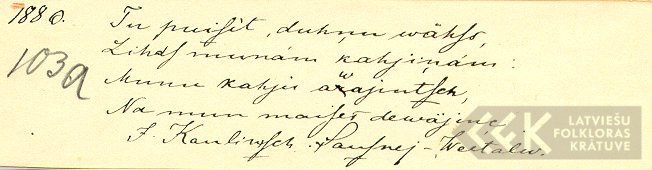 1880.
103a
Tu puisit, duhņu wähks,
Lihds munam kahjiņam:
Munu kahjis awajintsch,
Na mun maises dewäjine.
J. Kauliņsch. Sausnej-Weetalw.
LATVIEŠU
FOLKLORAS
KRĀTUVE